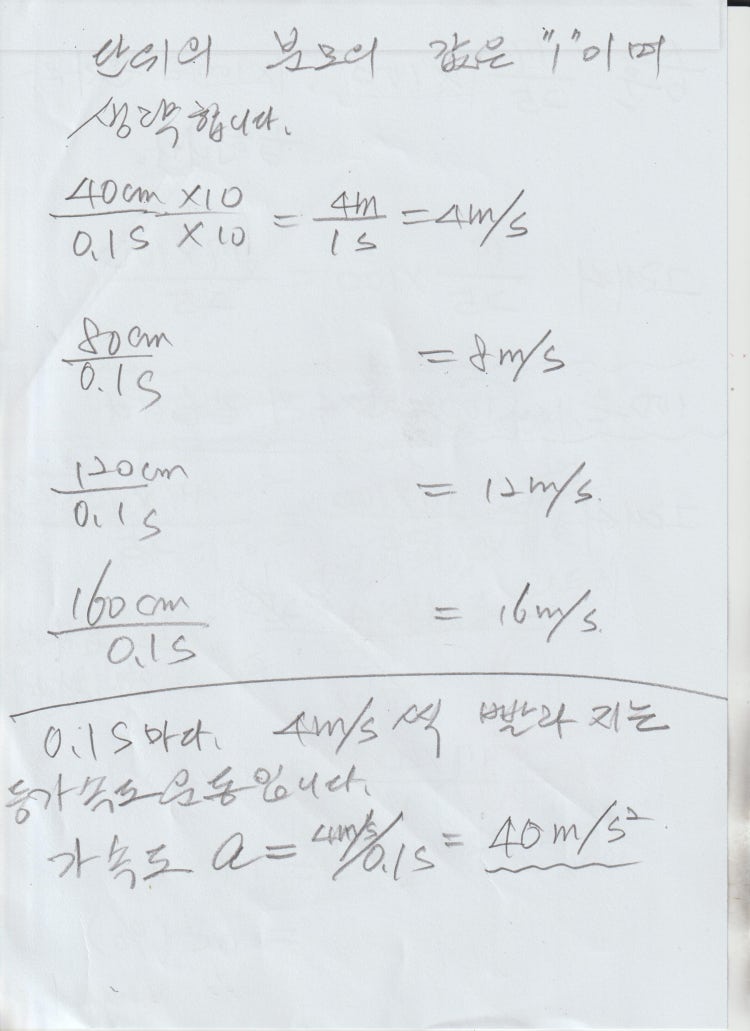 단위의 분모의 값은 "1"이며
생략합니다.
40cm ×10 / 0.1s ×10 = 4m / 1s = 4m/s
80cm / 0.1s = 8m/s
120cm / 0.1s = 12m/s.
160cm / 0.1s = 16m/s.
0.1s마다. 4m/s씩 빨라지는
등가속도운동입니다.
가속도 a = 4m/s/0.1s = 40m/s²